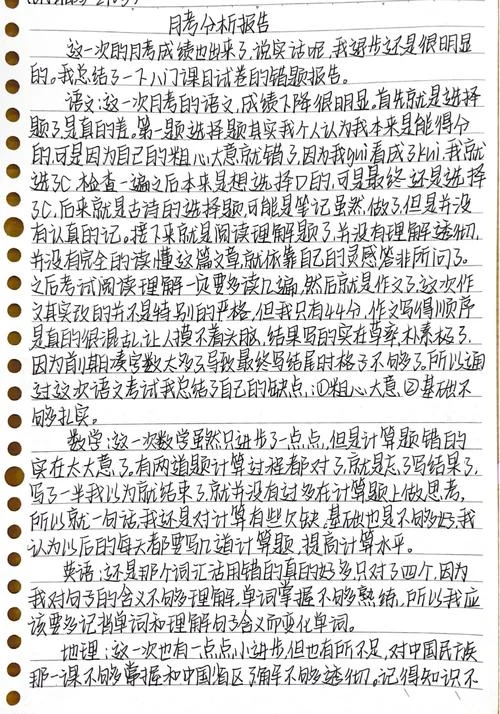 月考分析报告
这一次的月考成绩也出来了,说实话呢,我退步还是很明显
的。我总结了一下八门课目试卷的错题报告。
语文:这一次月考的语文,成绩下降很明显。首先就是选择
题了是真的差。第一题选择题其实我个人认为我本来是能得分
的,可是因为自己的粗心大意就错了,因为我gui看成了kui,我就
选了C,检查一遍之后本来是想选择D的,可是最终还是选择
了C,后来就是古诗的选择题,可能是笔记虽然做了,但是并没
有认真的记。接下来就是阅读理解题了,并没有理解透彻,
并没有完全的读懂这篇文章,就依靠自己的灵感答非所问了。
之后考试阅读理解一定要多读几遍,然后就是作文了,这次作
文其实改的并不是特别的严格,但我只有44分,作文写得顺序
是真的很混乱,让人摸不着头脑,结果写的实在草率,朴素极了,
因为前期凑字数太多了,导致最终写结尾时格子不够了,所以通
过这次语文考试我总结了自己的缺点:①粗心大意②基础不
够扎实。
数学:这一次数学虽然只进步了一点点,但是计算题错的
实在太大意了。有两道题计算过程都对了,就是忘了写结果了,
写了一半我以为就结束了,就并没有过多在计算题上做思考,
所以就一句话,我还是对计算有些欠缺,基础也是不够好,我
认为以后的每天都要写几道计算题,提高计算水平。
英语:还是那个词汇活用错的真的好多,只对了四个,因为
我对句子的含义不够理解,单词掌握不够熟练,所以我应
该要多记背单词和理解句子含义而变化单词。
地理:这一次也有一点点小进步,但也有所不足,对中国民族
那一课不够掌握和中国省区了解不够透彻。记得知识不